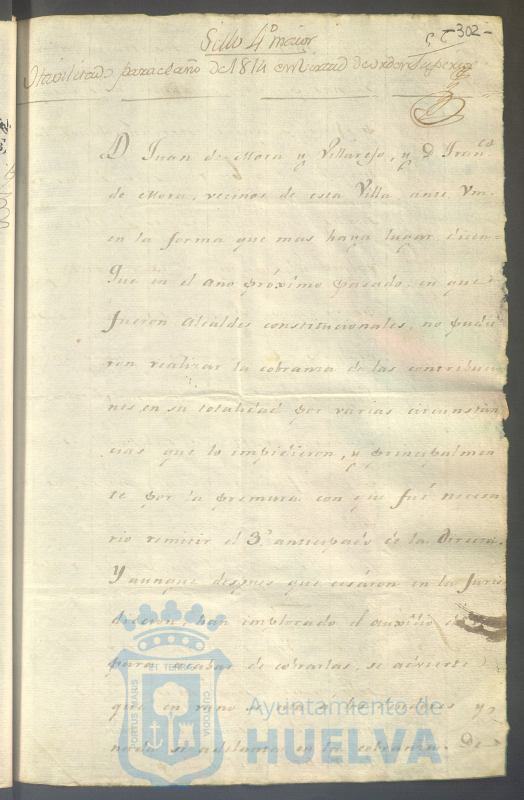 302-
Sello 4º maior
Havilitado para el año de 1814 en virtud de orden Superior
D Juan de Mora y Villarejo, y D Franco
de Mora, vecinos de esta Villa ante Vm.
en la forma que mas haya lugar dicen=
Que en el año próximo pasado, en que
fueron Alcaldes constitucionales, no pudie
ron realizar la cobranza de las contribucio
nes en su totalidad por varias circunstan
cias que lo impidieron, y principalmen
te por la premura con que fué necesa
rio remitir el 3º anticipado de la Directa.
Y aunque despues que cesáron en la Juris
diccion, han implorado el auxilio
para acabar de cobrarlas, se advierte
que en vano se á los deudores y
nada se adelanta en la cobranza. De
PORTUS MARIS ET TERRAE CUSTODIA
Ayuntamiento de
HUELVA